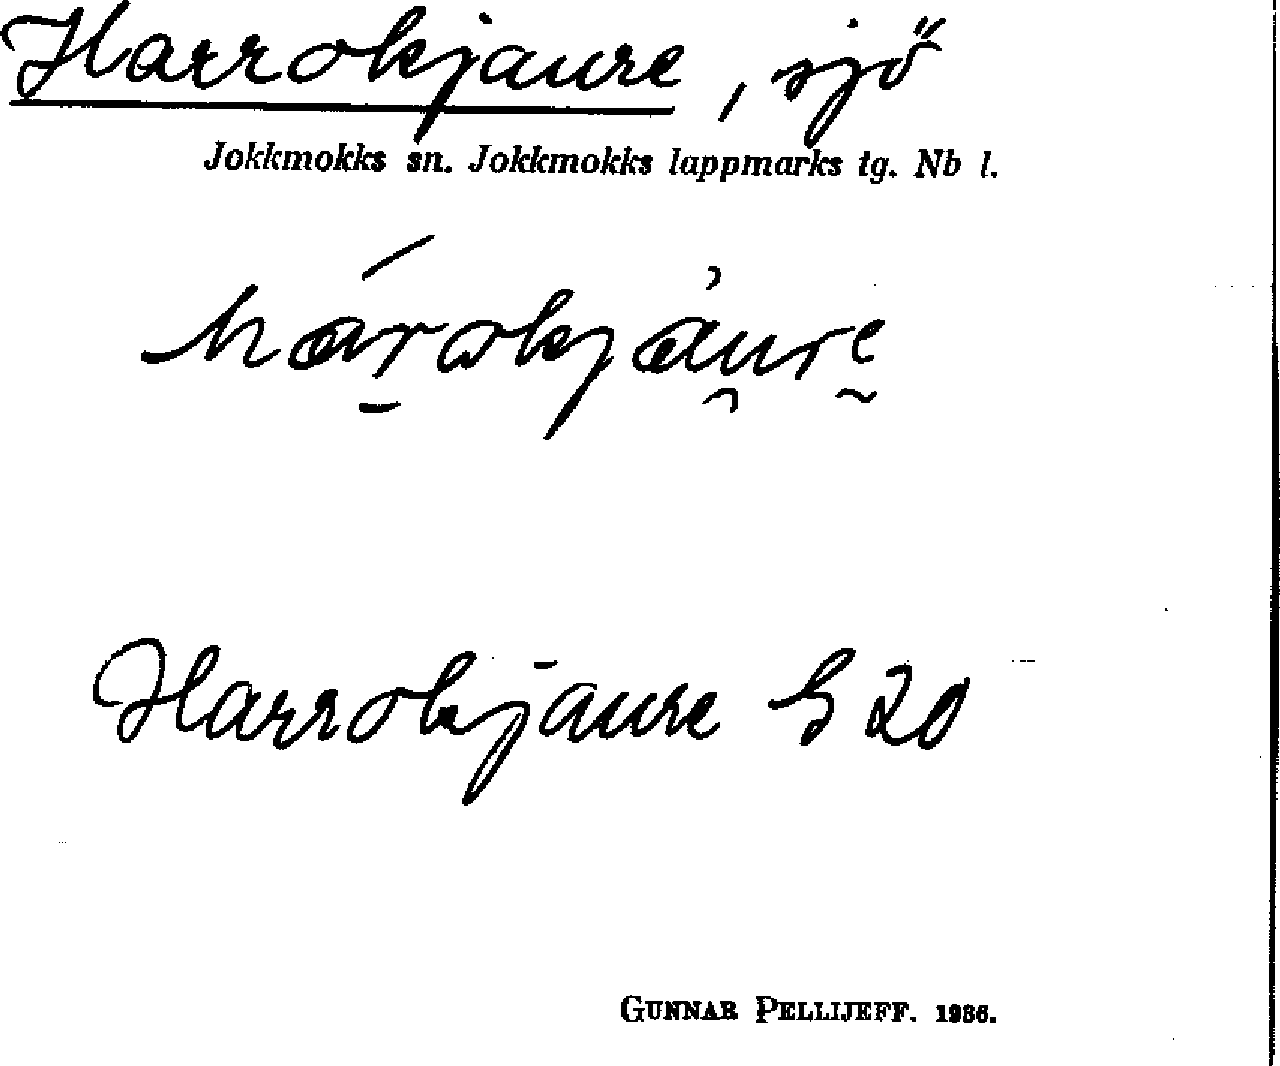 Harrokjaure, sjö
Jokkmokks sn. Jokkmokks lappmarks tg. Nb l.
Harrokjaure G 20
GUNNAR PELLIJEFF. 1936.